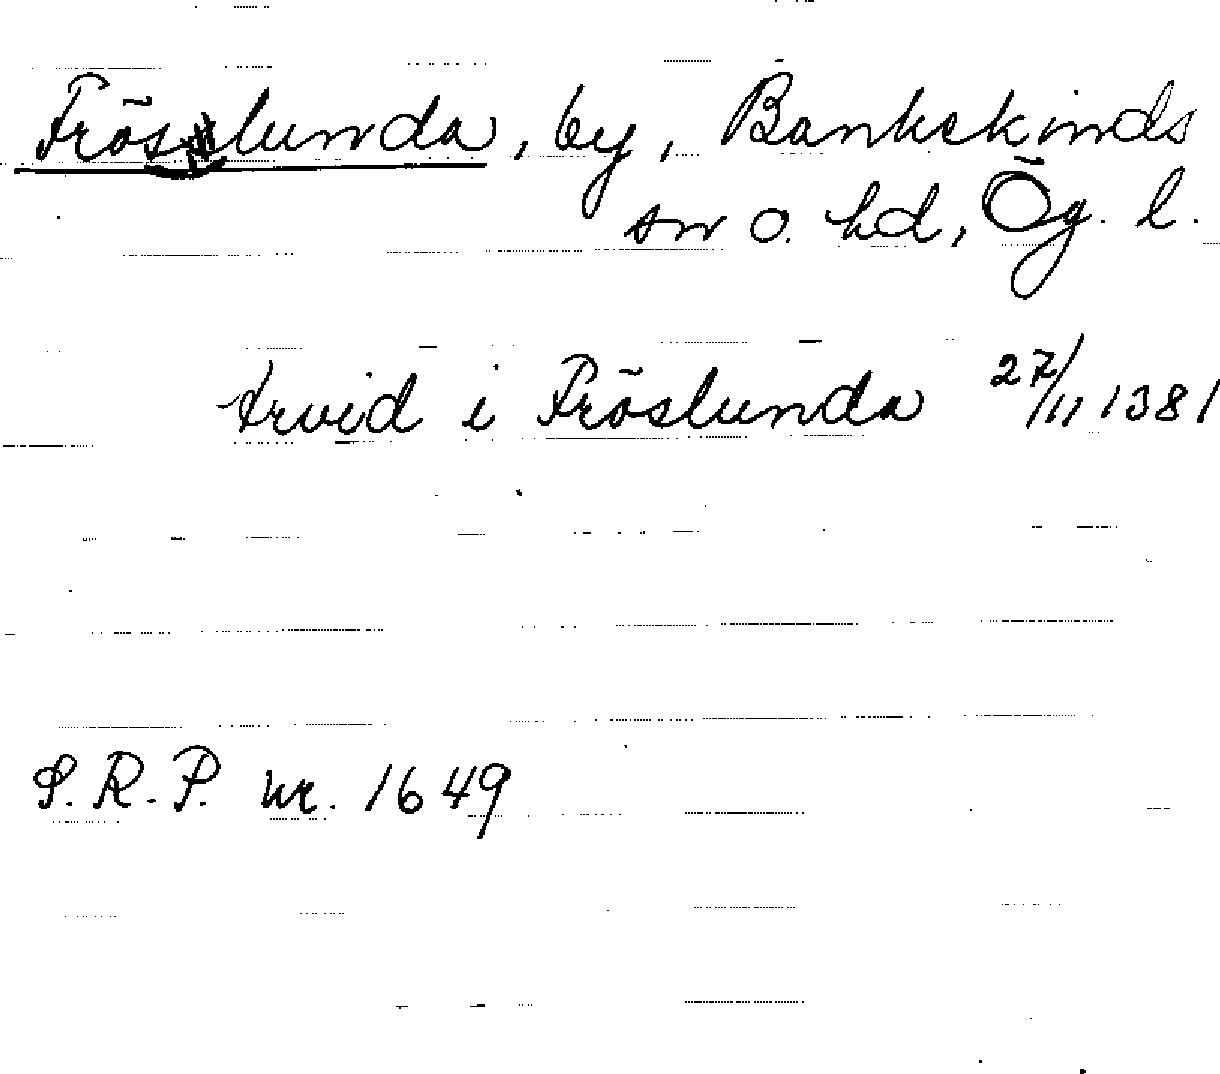 Fröslunda, by, Bankekinds
sn o. hd, Ög. l.
Arvid i Fröslunda 27/11 1381
S.R.P. nr. 1649